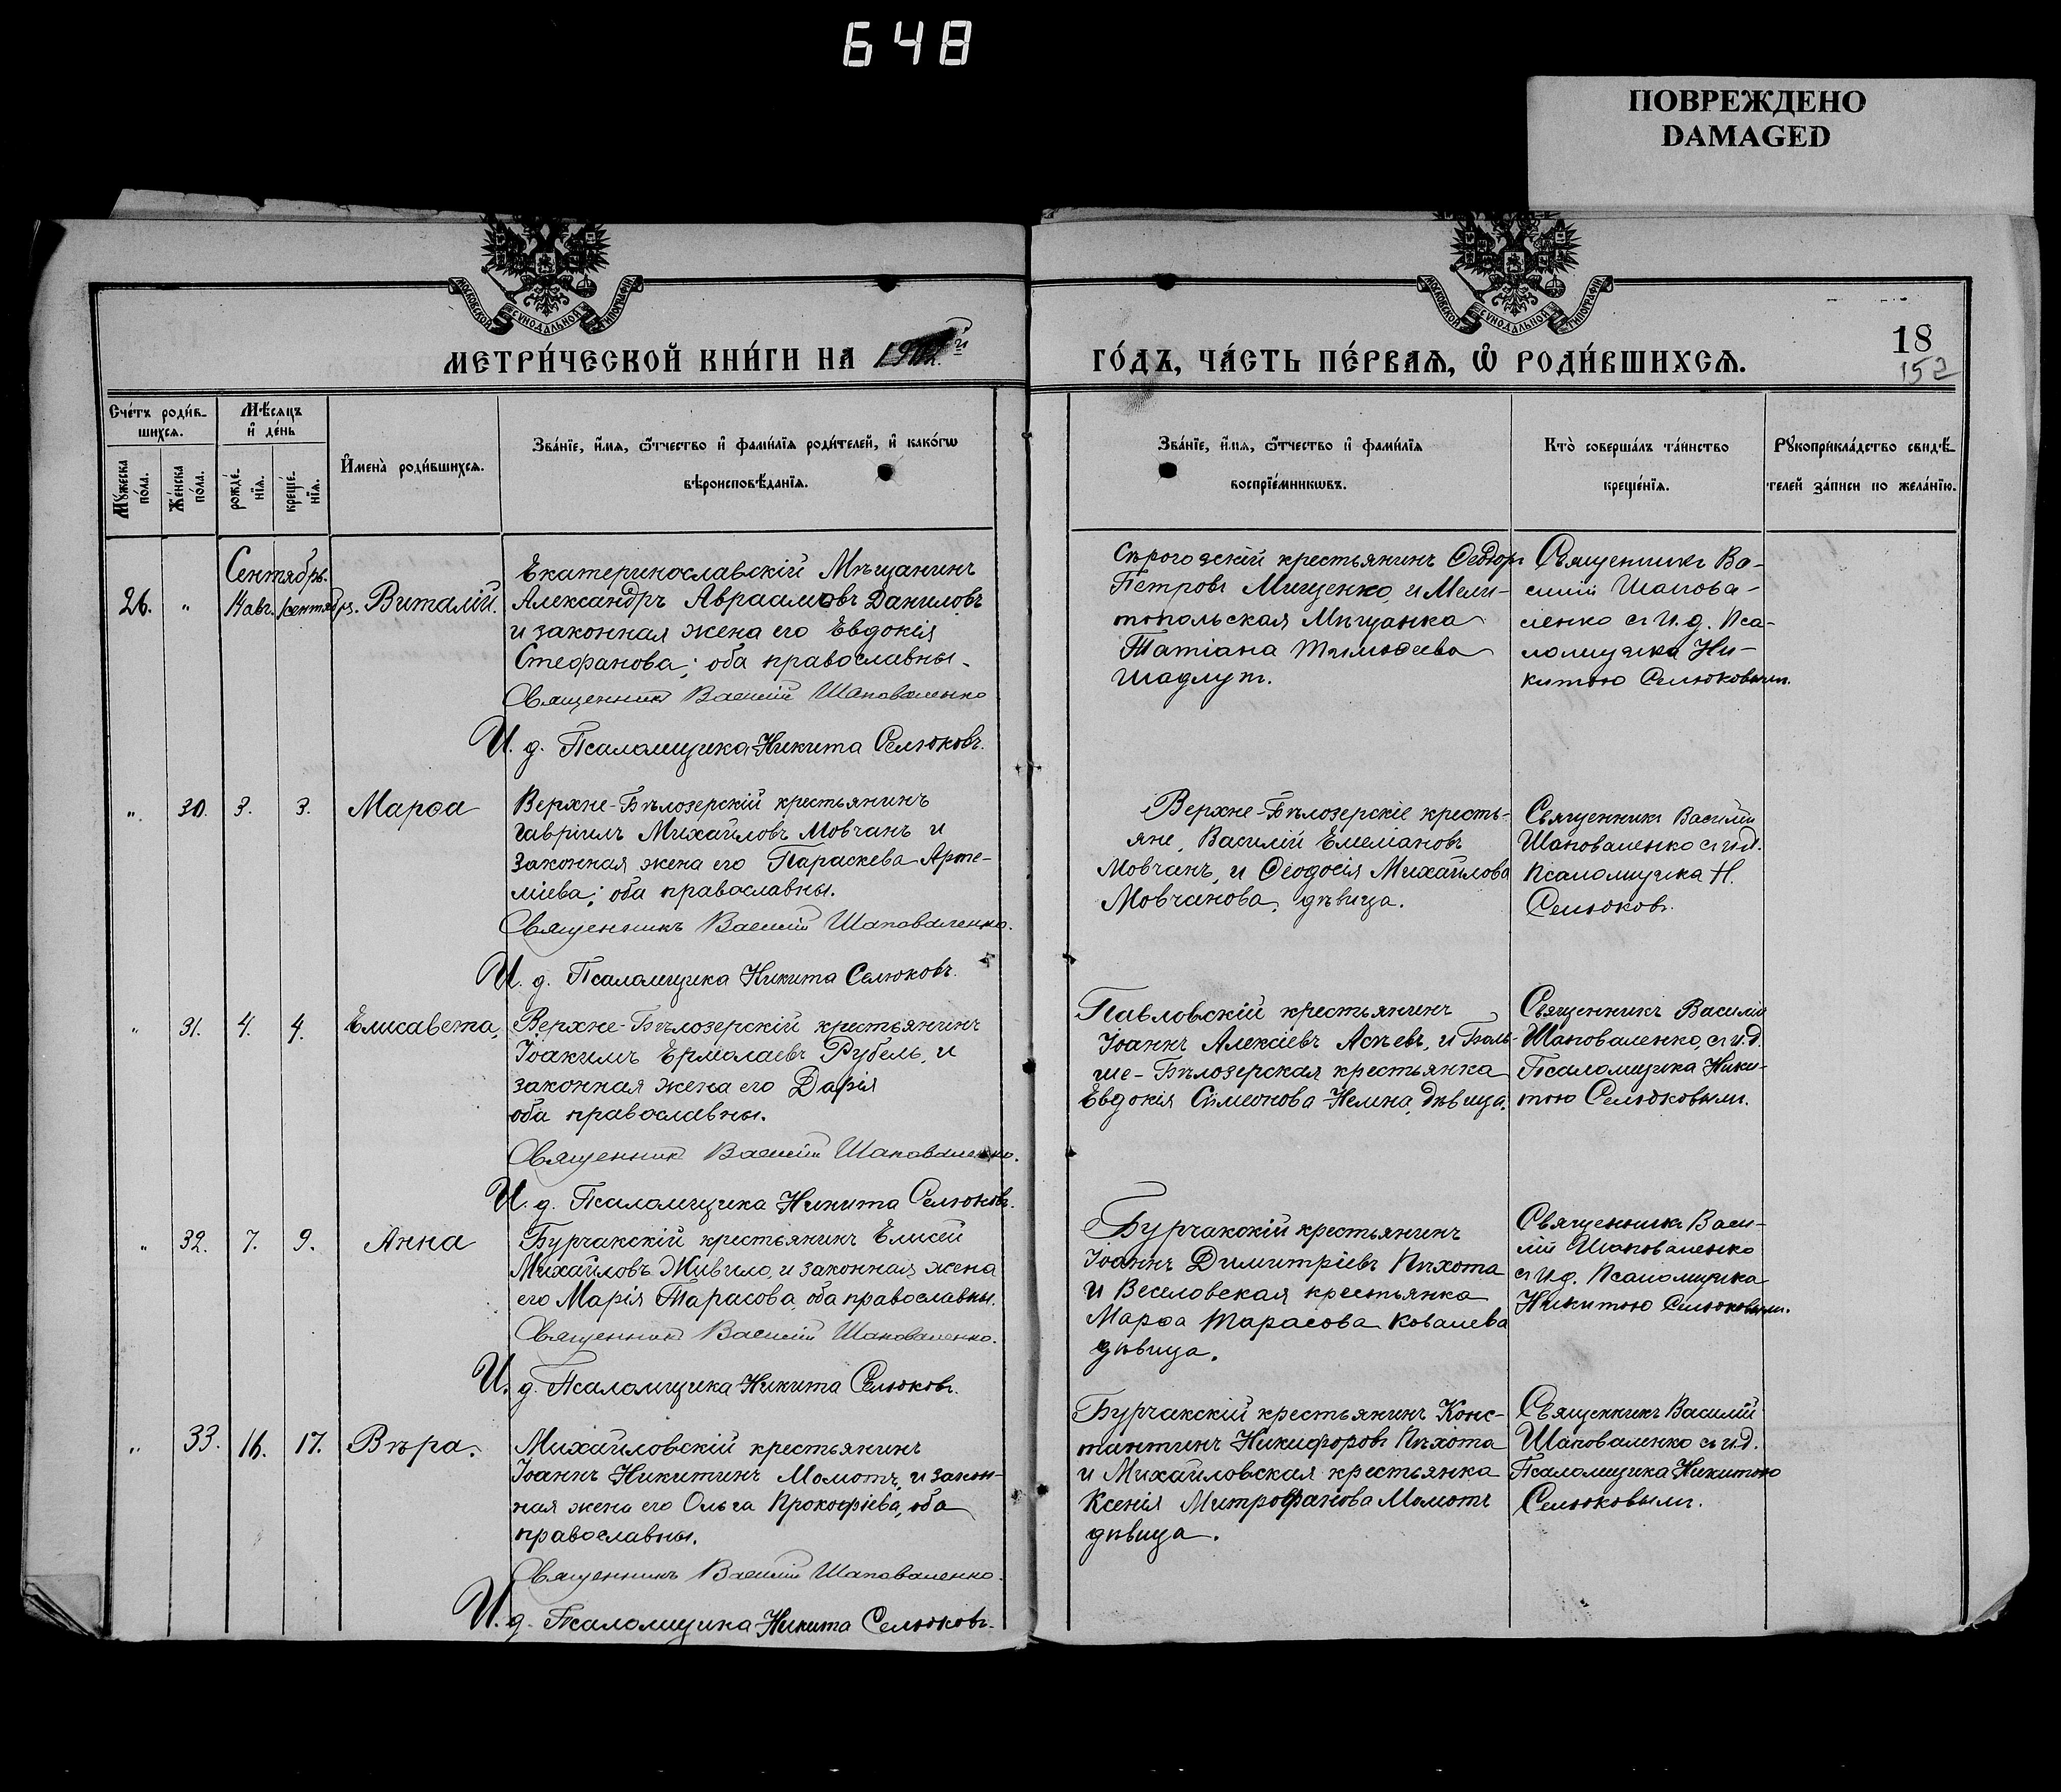 648
ПОВРЕЖДЕНО
DAMAGED
МОСКОВСКОЙ СѴНОДАЛЬНОЙ ТИПОГРАФІИ
МОСКОВСКОЙ СѴНОДАЛЬНОЙ ТИПОГРАФІИ
МЕТРИ́ЧЕСКОЙ КНИ́ГИ НА
ГО́ДЪ, ЧА́СТЬ ПЕ́РВАѦ, Ѡ҆ РОДИ́ВШИХСѦ.
18
152
Сче́тъ роди́в-
шихсѧ.
Мѣ́сѧцъ
и҆ де́нь
Мꙋ́жеска
по́ла.
Же́нска
по́ла.
рожде́-
нїѧ.
креще́-
нїѧ.
И҆мена̀ роди́вшихсѧ.
Зва́нїе, и҆́мѧ, ѻ҆́тчество и҆ фами́лїѧ роди́телей, и҆ како́гѡ
вѣроисповѣ́данїѧ.
Зва́нїе, и҆́мѧ, ѻ҆́тчество и҆ фами́лїѧ
воспрїе́мникѡвъ.
Кто̀ соверша́лъ та́инство
креще́нїѧ.
Рꙋкоприкла́дство свидѣ́-
телей за́писи по жела́нїю.
Сентябрь.
26. " Виталій.
Екатеринославскій Мѣщанинъ
Александръ Авраамовъ Даниловъ
и законная жена его Евдокія
Стефанова; оба православны.
Священникъ Василій Шаповаленко
И. д. Псаломщика Никита Селюковъ.
крестьянинъ Ѳеодоръ
Петровъ Мищенко, и Мели-
топольская Мѣщанка
Татіана Тимоѳеева
Шадлун.
Священникъ Ва-
силій Шапова-
ленко съ И. д. Пса-
ломщика Ни-
китою Селюковымъ.
" 30. 3. 3. Марѳа
Верхне-Бѣлозерскій крестьянинъ
Гавріилъ Михайловъ Мовчанъ и
законная жена его Параскева Арте-
міева; оба православны.
Священникъ Василій Шаповаленко.
И. д. Псаломщика Никита Селюковъ.
Верхне-Бѣлозерскіе кресть-
яне, Василій Емеліановъ
Мовчанъ, и Ѳеодосія Михайлова
Мовчанова, дѣвица.
Священникъ Василій
Шаповаленко съ и.д.
Псаломщика Н.
Селюковъ.
" 31. 4. 4. Елисавета,
Верхне-Бѣлозерскій крестьянинъ
Іоакимъ Ермолаевъ Рубель, и
законная жена его Дарія
оба православны.
Священникъ Василій Шаповаленко.
И. д. Псаломщика Никита Селюковъ.
Павловскій крестьянинъ
Іоаннъ Алексіевъ и Боль-
ше-Бѣлозерская крестьянка
Евдокія Симеонова дѣвица.
Священникъ Василій
Шаповаленко, съ и.д.
Псаломщика Ники-
тою Селюковымъ.
" 32. 7. 9. Анна
Бурчакскій крестьянинъ Елисей
Михайловъ Живило, и законная жена
его Марія Тарасова, оба православны.
Священникъ Василій Шаповаленко.
И. д. Псаломщика Никита Селюковъ.
Бурчакскій крестьянинъ
Іоаннъ Димитріевъ Пѣхота
и Веселовская крестьянка
Марѳа Тарасова Ковалева
дѣвица.
Священникъ Васи-
лій Шаповаленко
съ И.д. Псаломщика
Никитою Селюковымъ.
" 33. 16. 17. Вѣра.
Михайловскій крестьянинъ
Іоаннъ Никитинъ Момотъ, и закон-
ная жена его Ольга Прокофіева, оба
православны.
Священникъ Василій Шаповаленко.
И. д. Псаломщика Никита Селюковъ.
Бурчакскій крестьянинъ Конс-
тантинъ Никифоровъ Пѣхота
и Михайловская крестьянка
Ксенія Митрофанова Момотъ
дѣвица.
Священникъ Василій
Шаповаленко съ и.д.
Псаломщика Никитою
Селюковымъ.